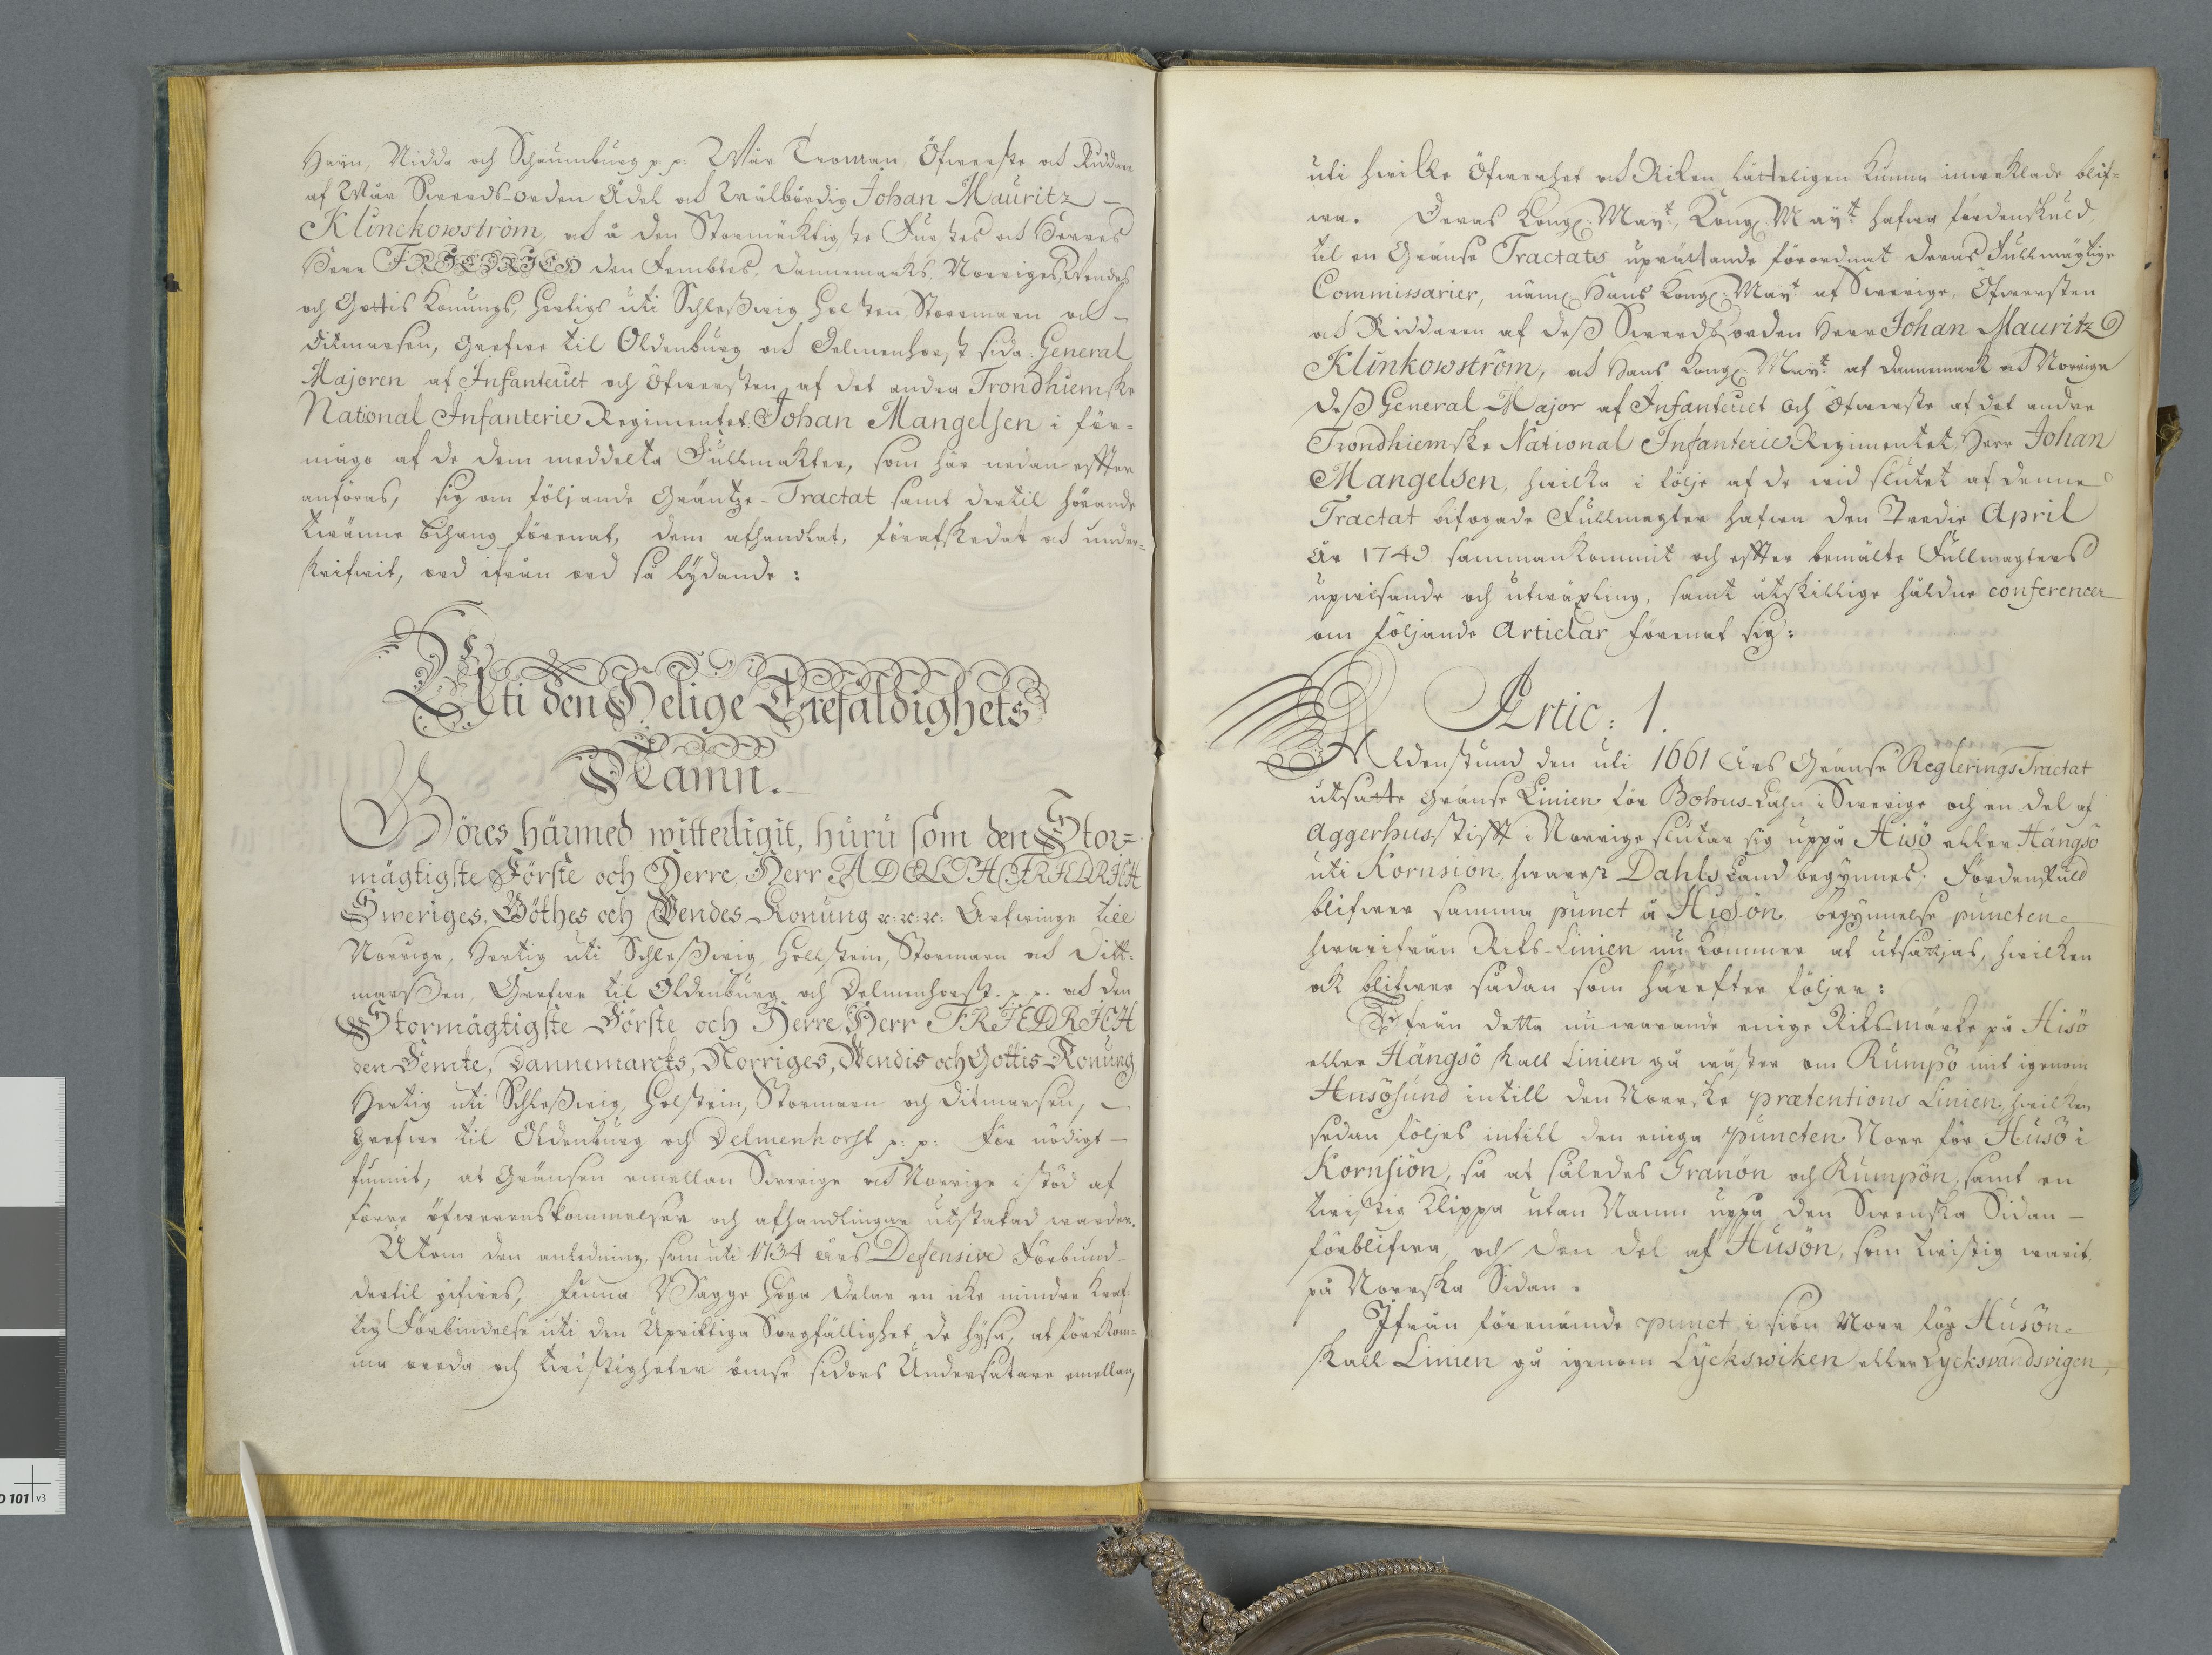 Hayn, Nidda och Schaumburg p. p. Wår Troman, Öfwerste och Riddare
af Wår Swerds-orden Ädel och Wälbördig Johan Mauritz
Klinckowström, och å den Stormäcktigste Furstes och Herres
Herr FRIEDRICH den Fembtes, Dannemarks, Norriges, Wendes
och Gottis Konungs, Hertigs uti Schleßwig Holsten Stormarn och
Ditmarsen, Grefwe til Oldenburg och Delmenhorst sida: General
Majoren af Infanteriet och Öfwersten af det andra Trondhiemske
National Infanterie Regimentet Johan Mangelsen i för-
mågo af de dem meddelta Fullmakter, som här nedan effter
anföras, sig om följande Gräntze-Tractat samt dertil hörande
twänne Bihang förenat, dem afhandlat, förafskedat och under-
skrifwit, ord ifrån ord så lydande:
Uti den Helige Trefaldighets
Namn.
Göres härmed witterligit, huru som den Stor=
mägtigste Förste och Herre, Herr ADOLPH FRIEDRICH
Sweriges, Göthes och Wendes Konung &c: &c: &c: Arfwinge till
Norrige, Hertig uti Schleßwig, Hollstein, Stormarn och Ditt-
marßen, Grefwe til Oldenburg och Delmenhorst. p. p. och den
Stormägtigste Förste och Herre, Herr FRIEDRICH
den Femte, Dannemarcks, Norriges, Wendis och Gottis Konung
Hertig uti Schleßwig, Holstein, Stormarn och Ditmarsen,
Grefwe til Oldenburg och Delmenhorst p: p: för nödigt
funnit, at Gränsen emellan Swerige och Norrige i stöd af
förre öfwerenskommelser och afhandlingar utstakad warder.
Utom den anledning, som uti 1734 Års Defensive Förbund
dertil gifwes, finna Bägge höga delar en icke mindre kraf-
tig Förbindelse uti den Upriktiga Sorgfällighet, de hysa, at förekom-
ma oreda och twistigheter ömse sidors Undersåtare emellan,
uti hwilke Öfwerhet och Riken lätteligen kunna inweklade blif-
wa. Deras Kongl: Mayt. Kongl: Mayt. hafwa fördenskuld,
til en Gränse Tractats uprättande förordnat deras Fullmägtige
Commissarier, näml: Hans Kongl: Mayt. af Swerige, Öfwersten
och Riddaren af deß Swerdsorden Herr Johan Mauritz
Klinkowström, och Hans Kongl: Mayt. af Dannemark och Norrige
deß General Major af Infanteriet och Öfwerste af det andre
Trondhiemske National Infanterie Regimentet, Herr Johan
Mangelsen, hwilka i följe af de wid slutet af denne
Tractat bifogade Fullmagter hafwa den Tredie April
År 1749 sammankommit och effter bemälte Fullmagters
upwisande och utwäxling, samt åtskillige håldne conferencer
om följande Articlar förenat sig:
Artic: 1.
Aldenstund den uti 1661 Års Gränse Reglerings Tractat
utsatte Gränse Linien för Bohus-Lähn i Swerige och en del af
Aggerhus stifft i Norrige slutar sig uppå Hisö eller Hängsö
uti Kornsion, hwarest Dahls Land begynnes. Fördenskuld
blifwer samma punct å Hisön begynnelse puncten
hwarifrån Riks-Linien nu kommer at utsättjas, hwilken
ock blifwer sådan som härefter följer:
Ifrån detta nuwarande enige Riksmärke på Hisö
eller Hängsö skall Linien gå wäster om Rumpö mit igenom
Husösund intill den Norrske prætentions Linien, hwilken
sedan följes intill den eniga puncten Norr för Husö i
Kornsiön, så at således Granön och Rumpön, samt en
twistig Klippa utan Namn uppå den Swenska Sidan
förblifwa, och den del af Husön, som twistig warit,
på Norrska Sidan.
Ifrån förenämde punct i siön Norr för Husön
skall Linien gå igenom Lyckswiken eller Lycksvandsvigen,